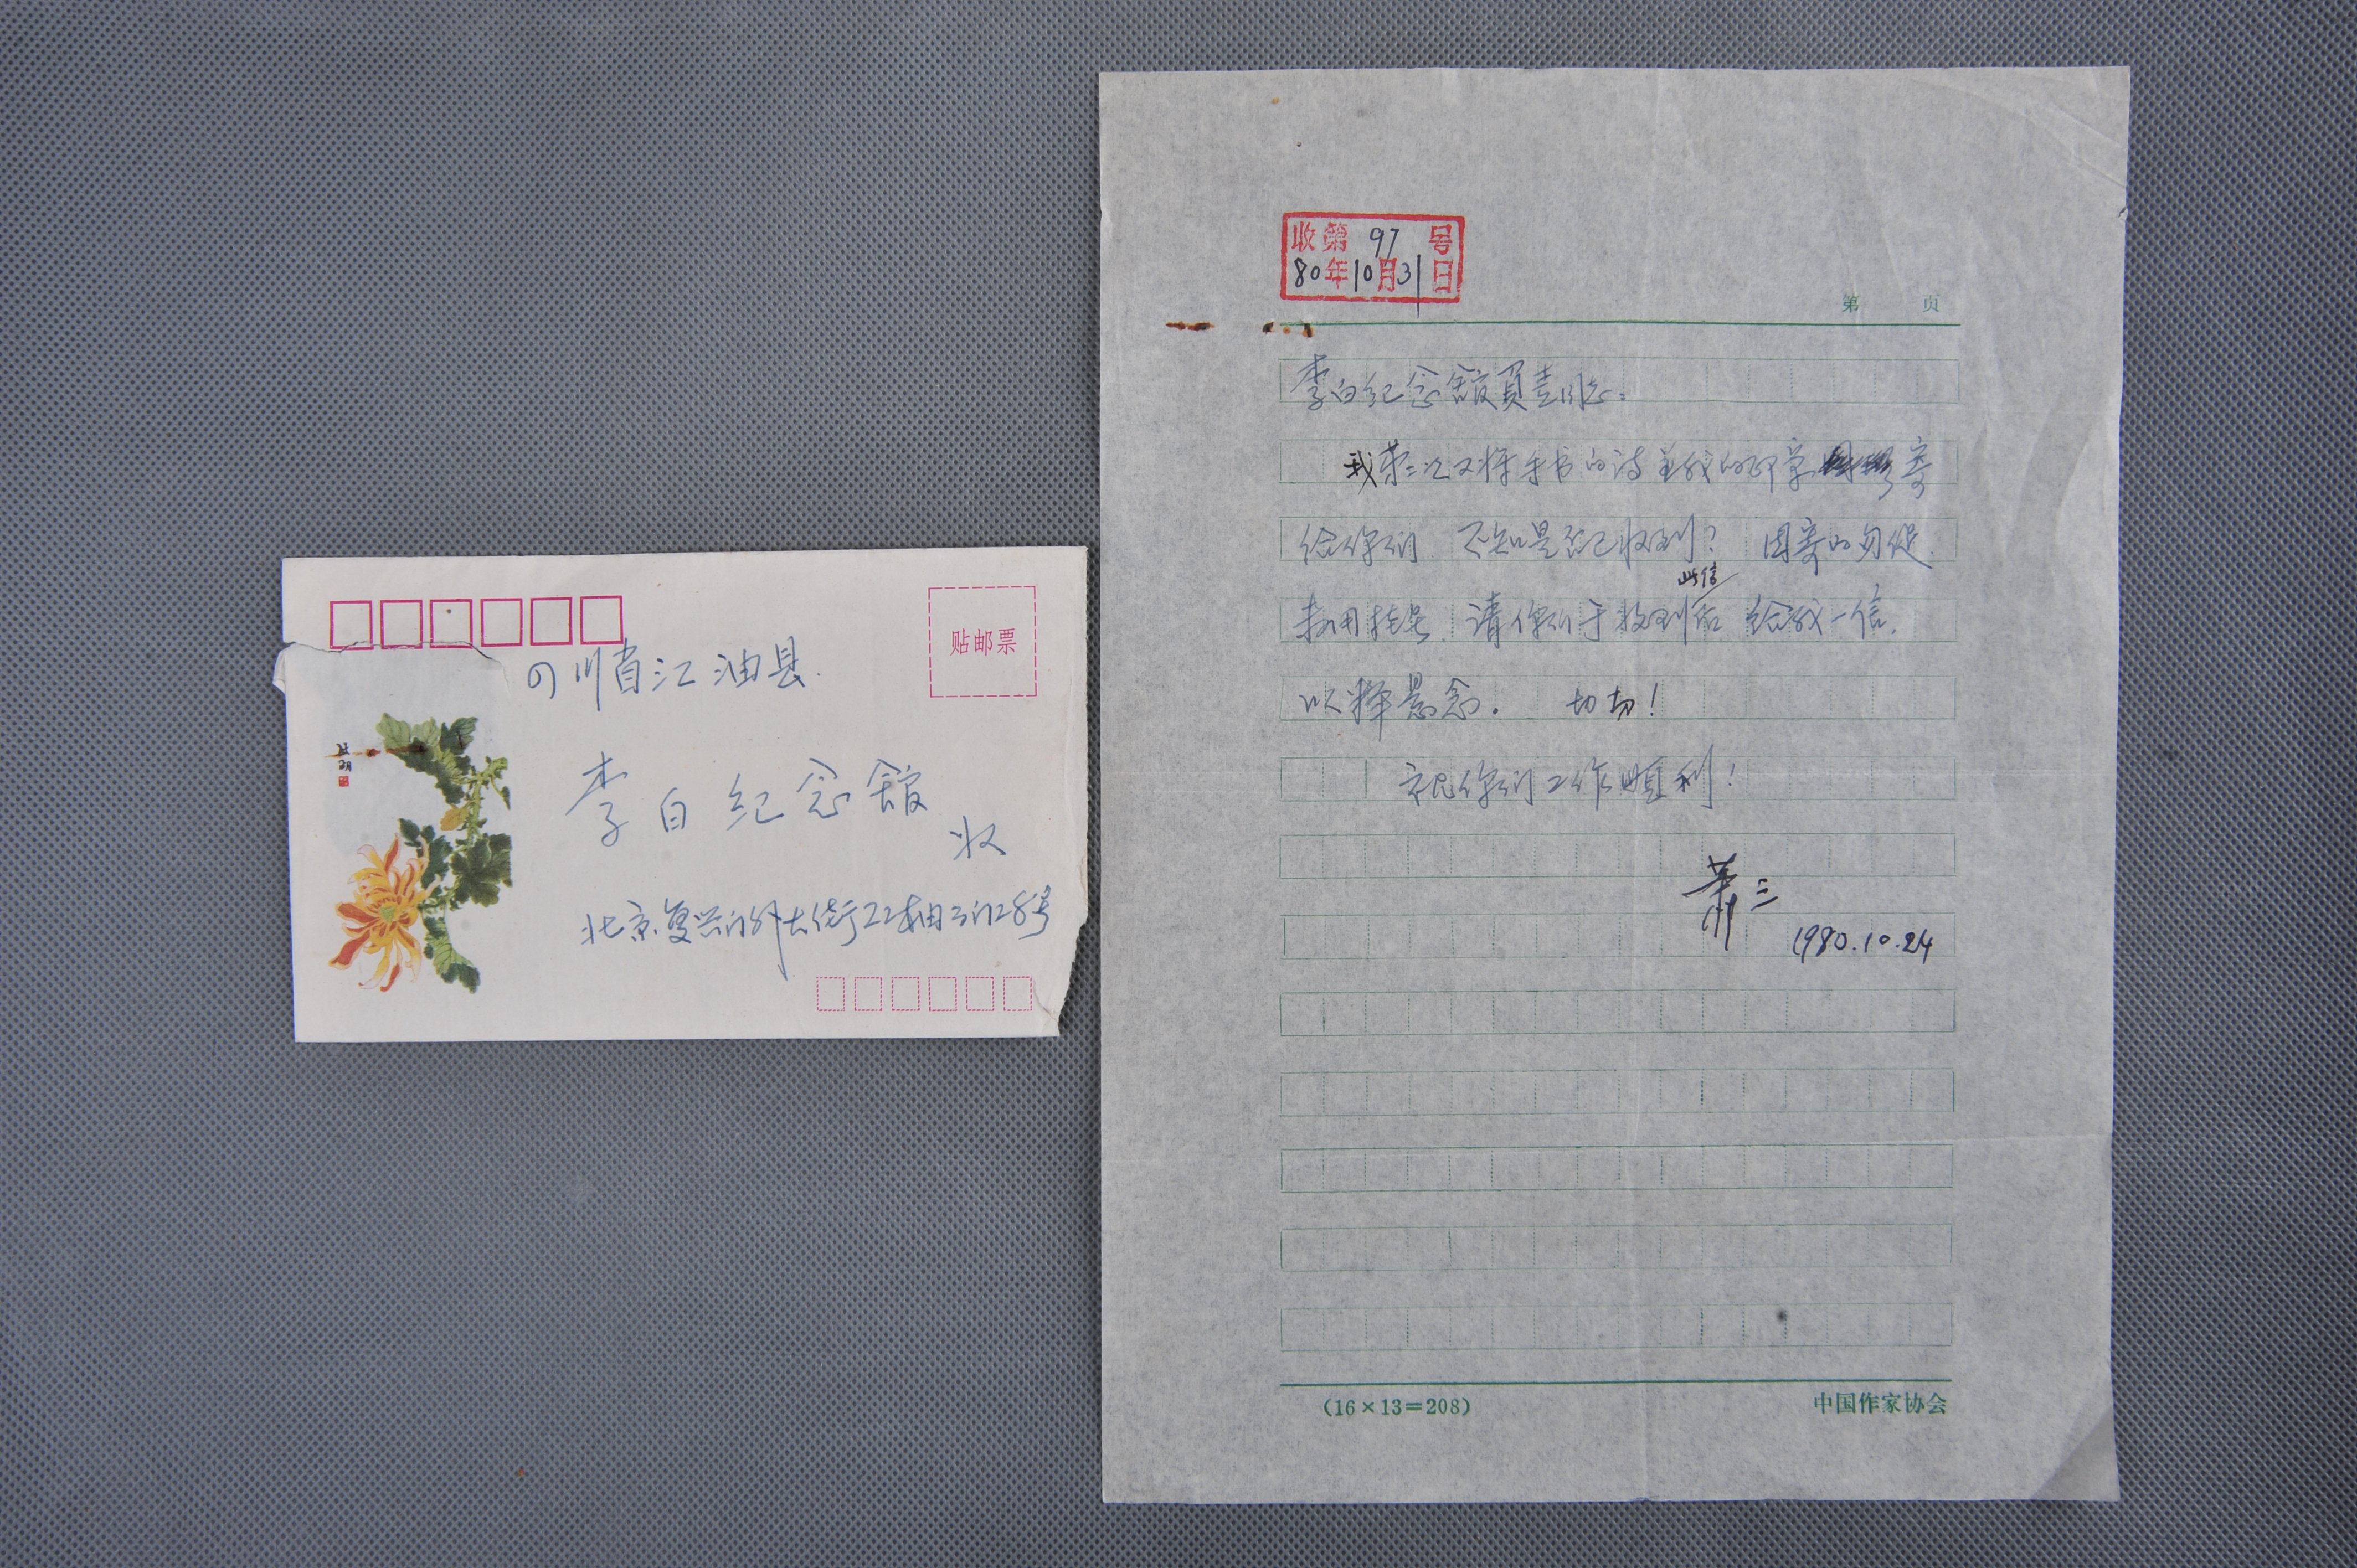 贴邮票
四川省江油县.
李白纪念馆
收
北京复兴门外大街22楼 28号
收第 97 号
80年10月31日
第 页
李白纪念馆负责同志:
我第二次又将手书的诗 我的印章 寄
给你们 不知是否已收到? 因寄的匆促.
此信
未用挂号. 请你们于收到后 给我一信.
以释悬念. 切切!
祝你们工作顺利!
萧三
1980.10.24
(16×13=208)
中国作家协会